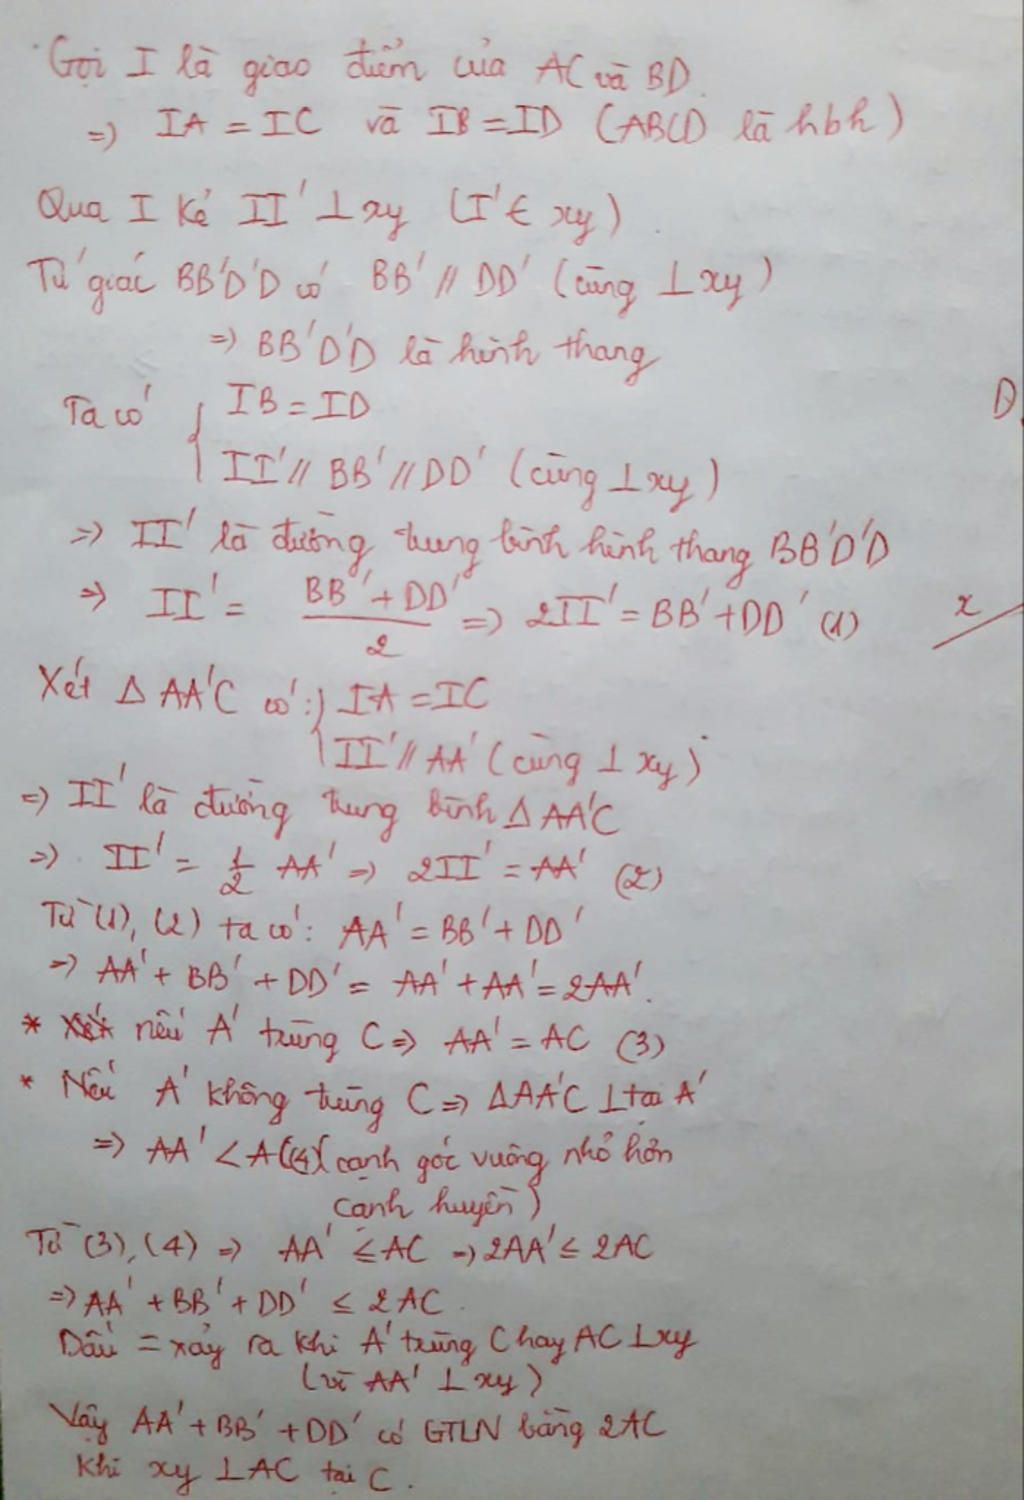 Gọi I là giao điểm của AC và BD.
=> IA = IC và IB = ID (ABCD là hbh)
Qua I kẻ II' ⊥ xy (I' ∈ xy)
Tứ giác BB'D'D có BB' // DD' (cùng ⊥ xy)
=> BB'D'D là hình thang
Ta có { IB = ID
D
II' // BB' // DD' (cùng ⊥ xy)
=> II' là đường trung bình hình thang BB'D'D
=> II' = (BB' + DD')/2 => 2II' = BB' + DD' (1)
x
Xét Δ AA'C có: { IA = IC
II' // AA' (cùng ⊥ xy)
=> II' là đường trung bình Δ AA'C
=> II' = 1/2 AA' => 2II' = AA' (2)
Từ (1), (2) ta có: AA' = BB' + DD'
=> AA' + BB' + DD' = AA' + AA' = 2AA'.
* nếu A' trùng C => AA' = AC (3)
* Nếu A' không trùng C => ΔAA'C ⊥ tại A'
=> AA' < AC (4) (cạnh góc vuông nhỏ hơn
cạnh huyền)
Từ (3), (4) => AA' ≤ AC => 2AA' ≤ 2AC
=> AA' + BB' + DD' ≤ 2AC.
Dấu = xảy ra khi A' trùng C hay AC ⊥ xy
(vì AA' ⊥ xy)
Vậy AA' + BB' + DD' có GTLN bằng 2AC
khi xy ⊥ AC tại C.